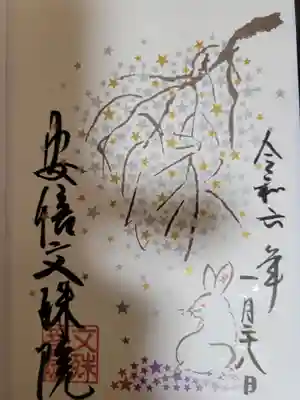 令和六年
一月廿八日
安倍文殊院
文殊